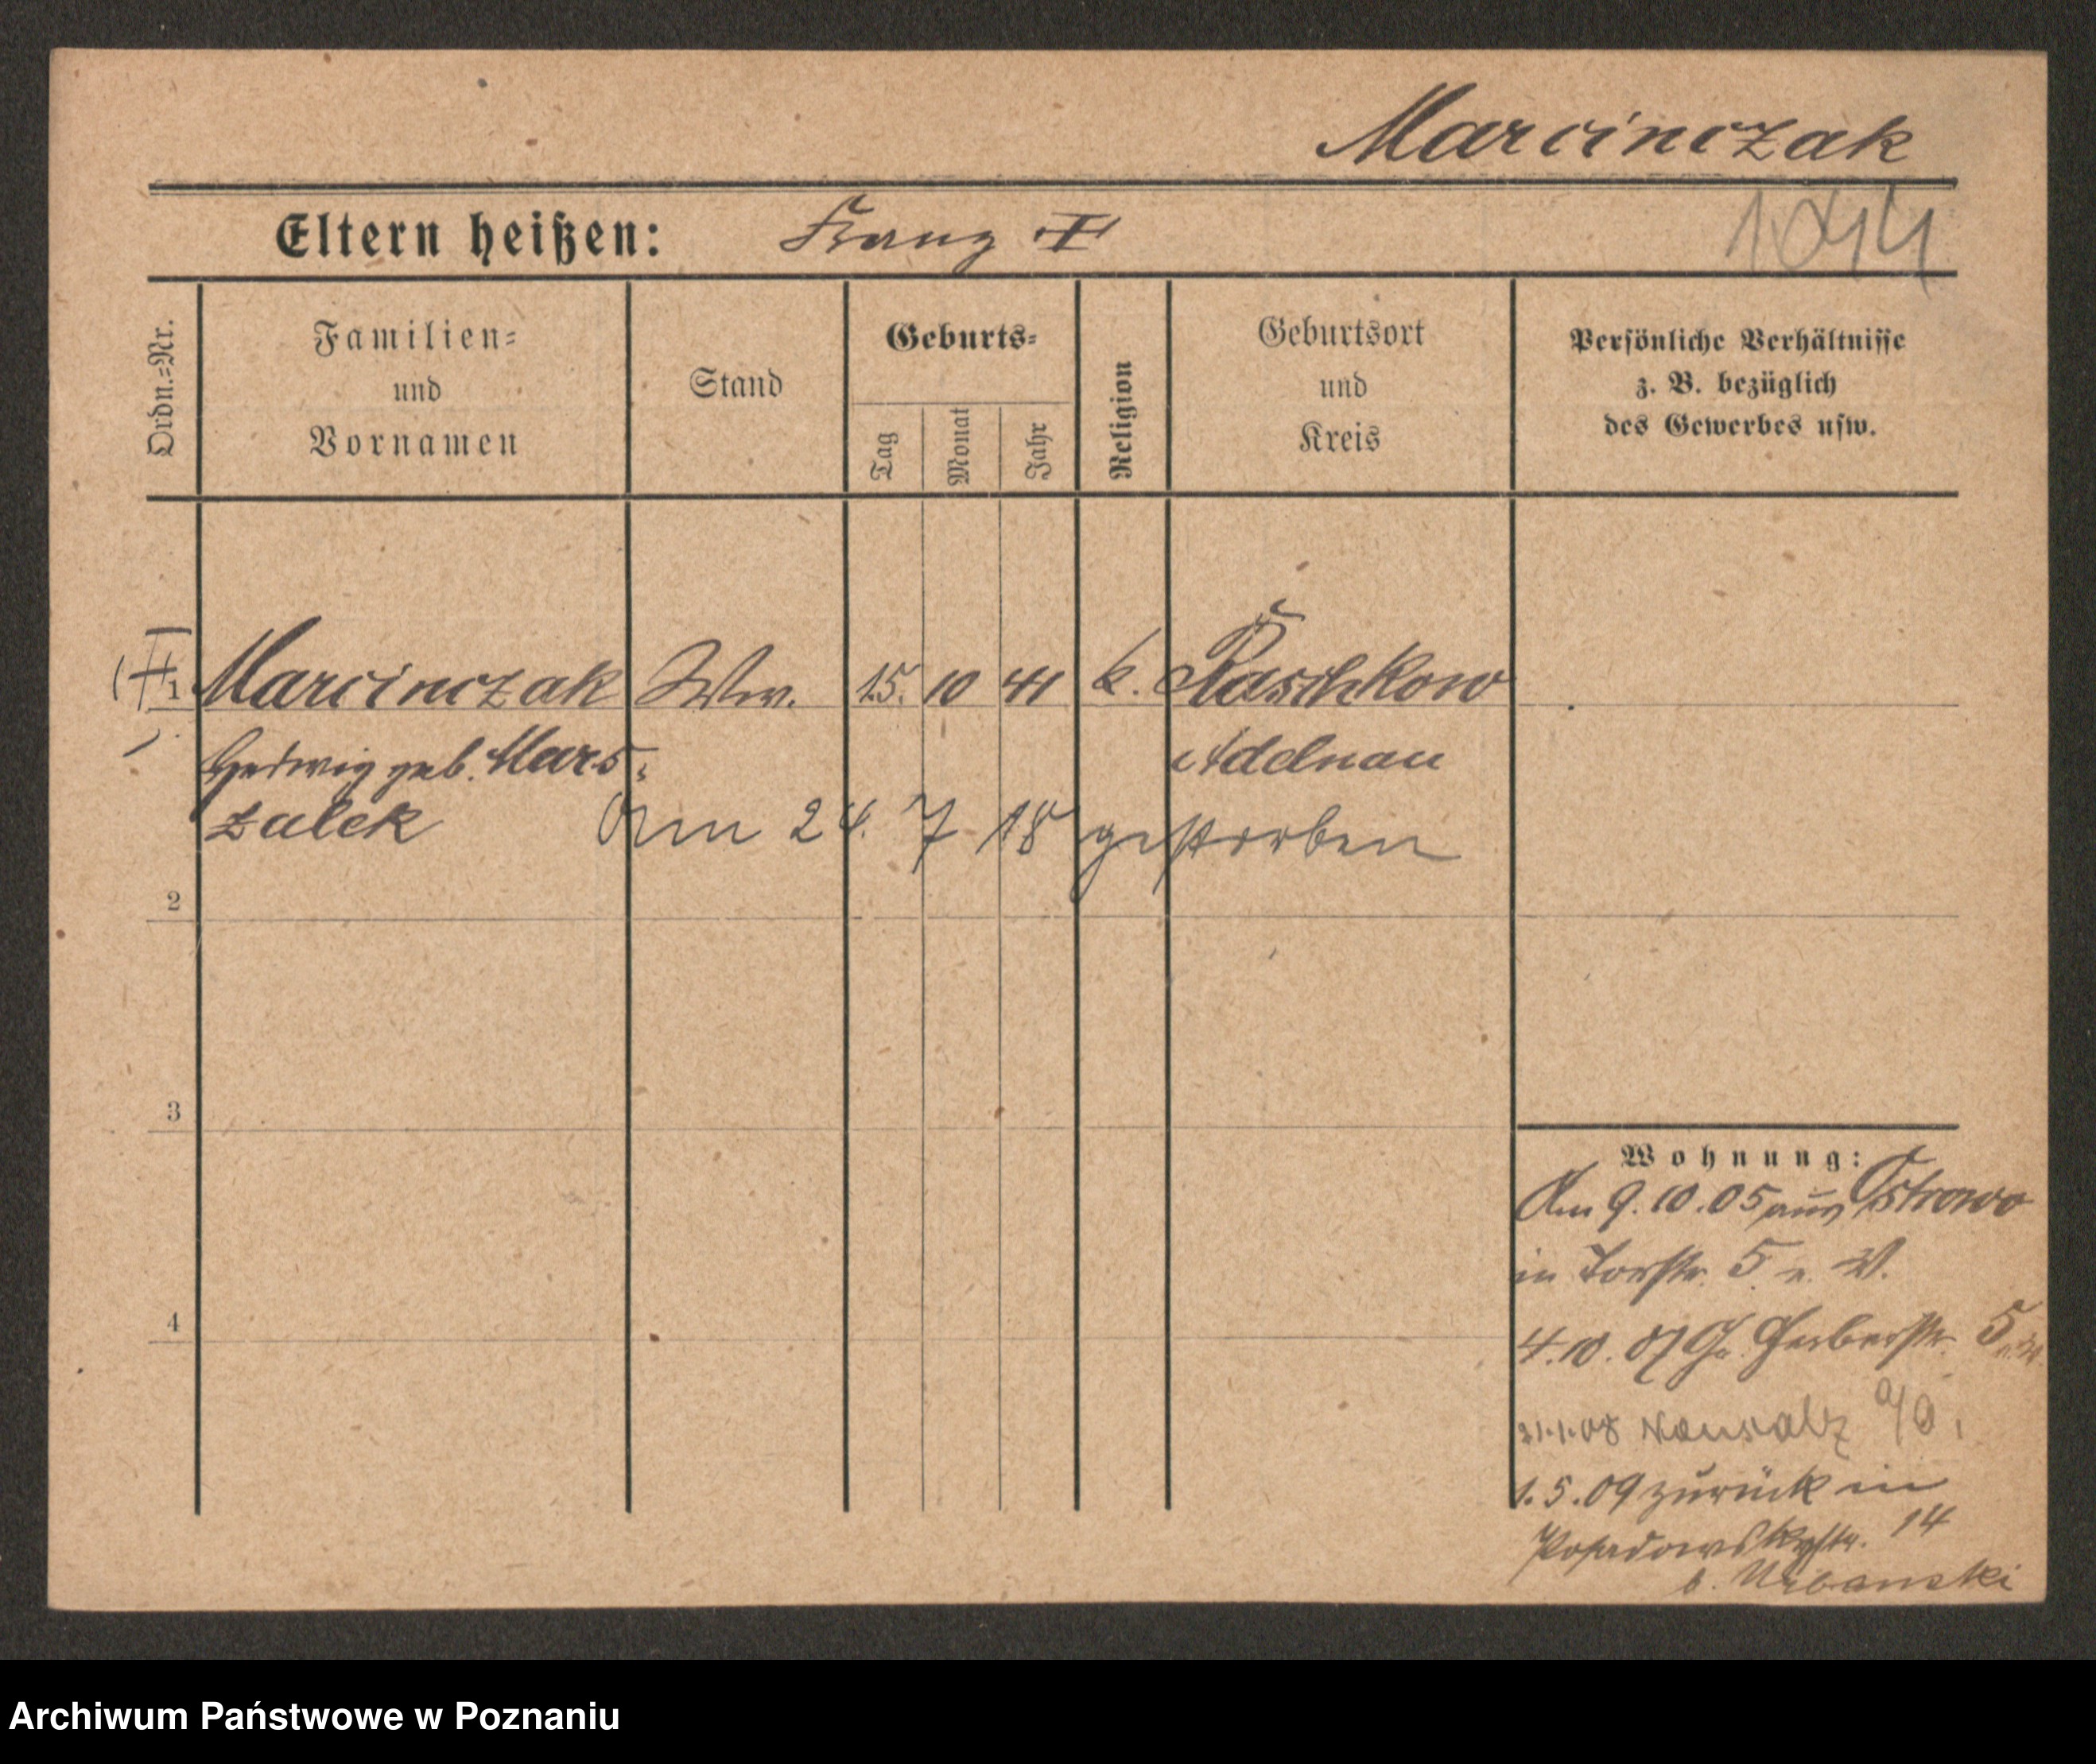 Marcinczak
Eltern heißen: Franz
Ordn.=Nr.
Familien=
und
Vornamen
Stand
Geburts=
Tag
Monat
Jahr
Religion
Geburtsort
und
Kreis
Persönliche Verhältnisse
z. B. bezüglich
des Gewerbes usw.
1 Marcinczak Ww. 15. 10 41 k. Raschkow
Hedwig geb. Mars= Adelnau
zalek Am 24. 7 18 gestorben
2
3
4
Wohnung:
Am 9.10.05 aus Ostrowo
in Torstr. 5
4.10.07 Gr. Gerberstr. 5
21.1.08 Neusalz a/O.
1.5.09 zurück in
Posadowskystr. 14
b. Urbanski
Archiwum Państwowe w Poznaniu